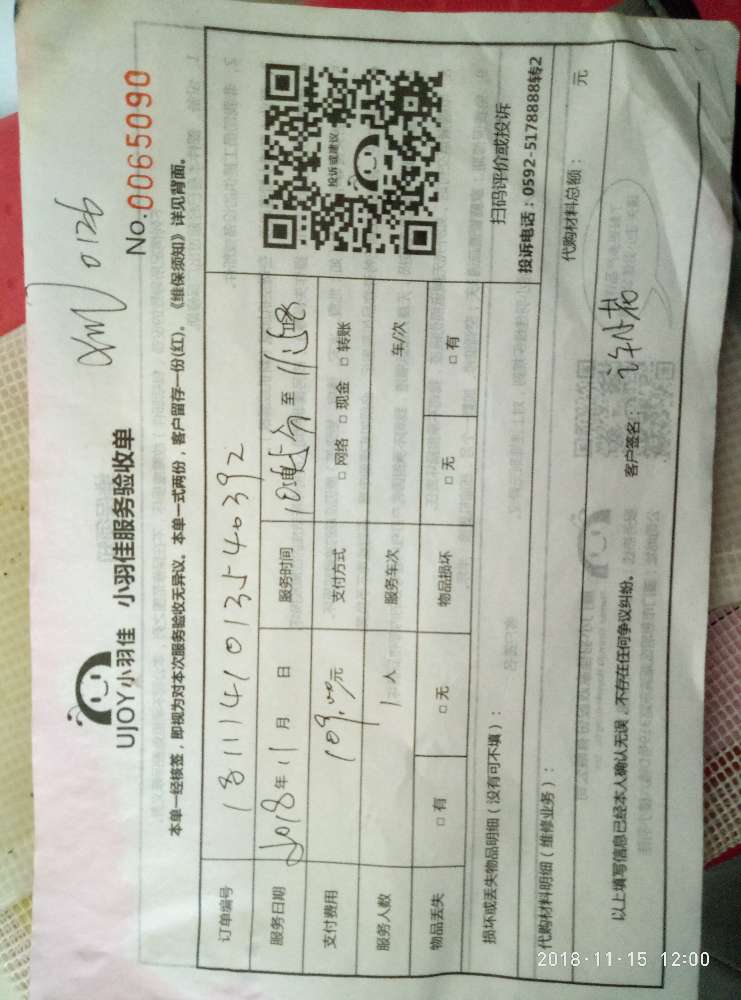 XM 0126
UJOY小羽佳 小羽佳服务验收单
No.0065090
本单一经核签，即视为对本次服务验收无异议。本单一式两份，客户留存一份(红)。《维保须知》详见背面。
订单编号 181114101354 0392
服务日期 2018年11月 日 服务时间 10 至 11
支付费用 109.00元 支付方式 □网络 □现金 □转账
服务人数 1人 服务车次 车/次
物品丢失 □有 □无 物品损坏 □无 □有
投诉或建议
扫码评价或投诉
投诉电话：0592-5178888转2
损坏或丢失物品明细（没有可不填）：
代购材料明细（维修业务）： 代购材料总额： 元
以上填写信息已经本人确认无误，不存在任何争议纠纷。 客户签名：
2018-11-15 12:00